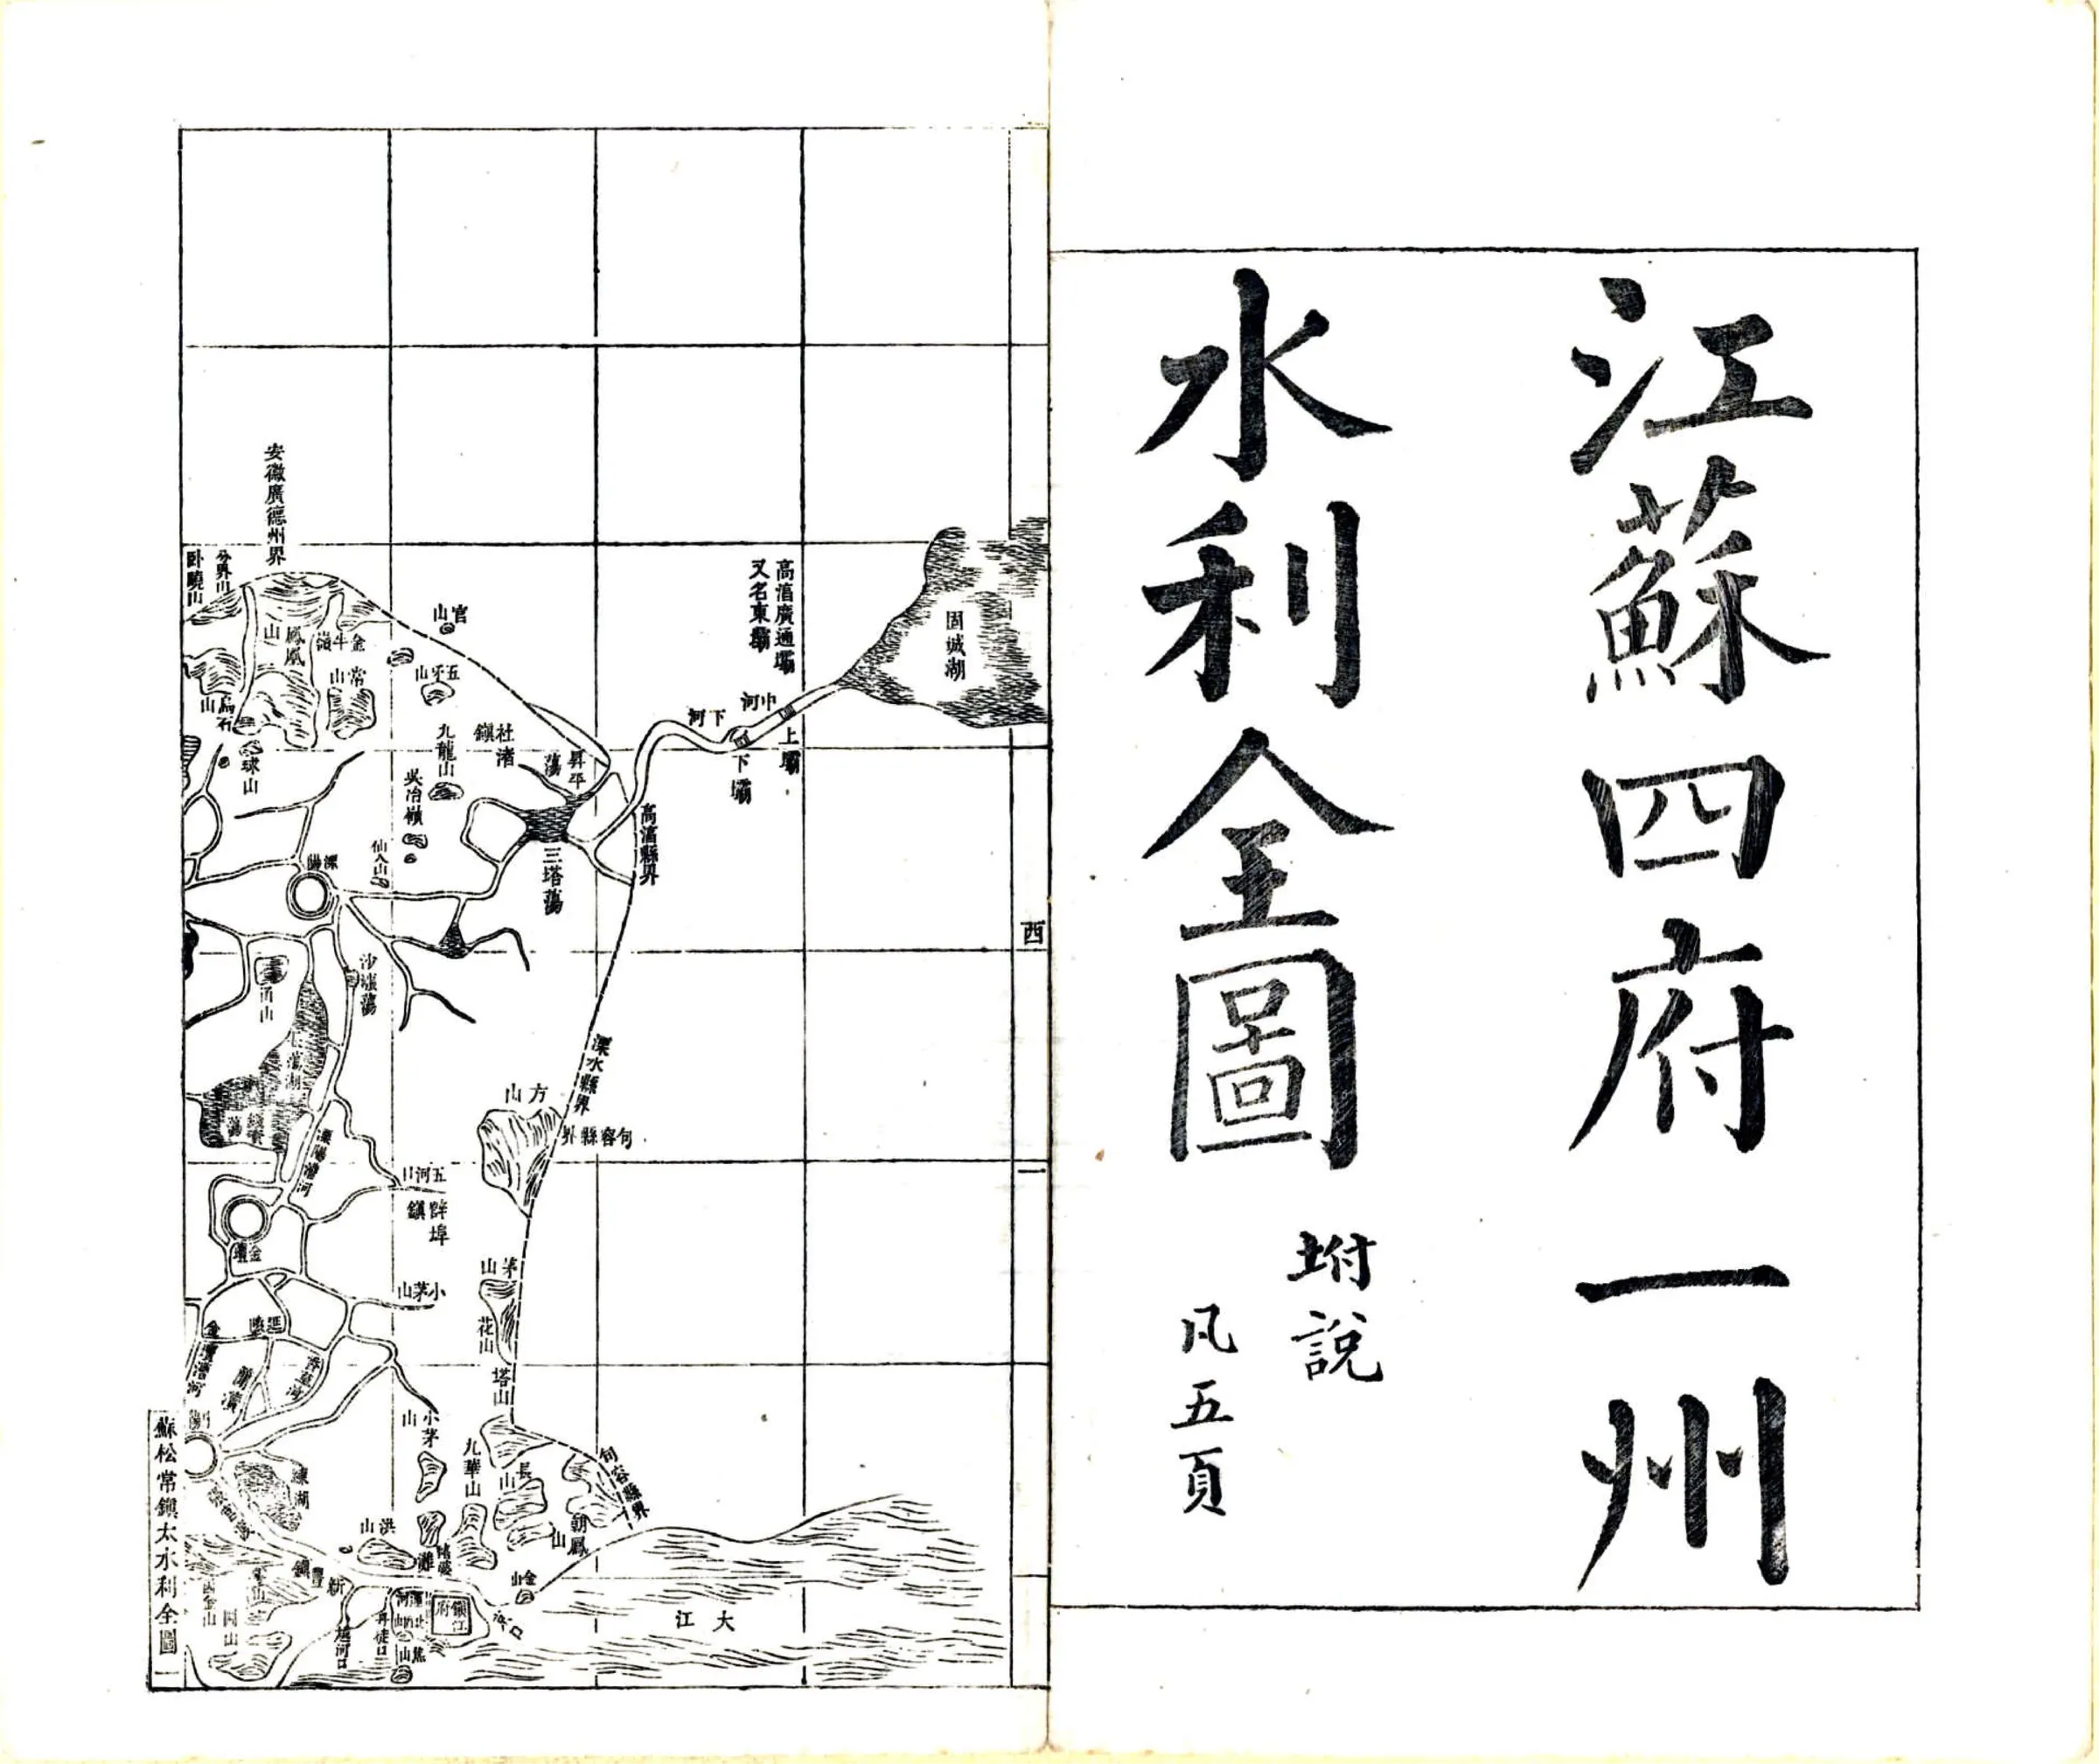 江蘇四府一州
水利全圖
坿說
凡五頁
西
一
固城湖
高湻廣通壩
又名東壩
中河
上壩
下河
下壩
高湻縣界
昇平
蕩
三塔蕩
社渚
鎮
官山
五牙山
九龍山
吳冶嶺
仙人山
安徽廣德州界
分界山
卧驍山
鳳凰
山
金牛嶺
常山
烏石
山
球山
溧陽
沙漲蕩
溧水縣界
方山
句容縣界
溧陽漕河
五河口
薛埠
鎮
金壇
茅山
小茅山
花山
塔山
金壇漕河
小茅
山
九華山
長山
句容縣界
朝鳳
山
練湖
洪山
金山
大江
鎮江
府
京口
丹徒口
越河口
焦山
新豐
鎮
圌山
蘇松常鎮太水利全圖一